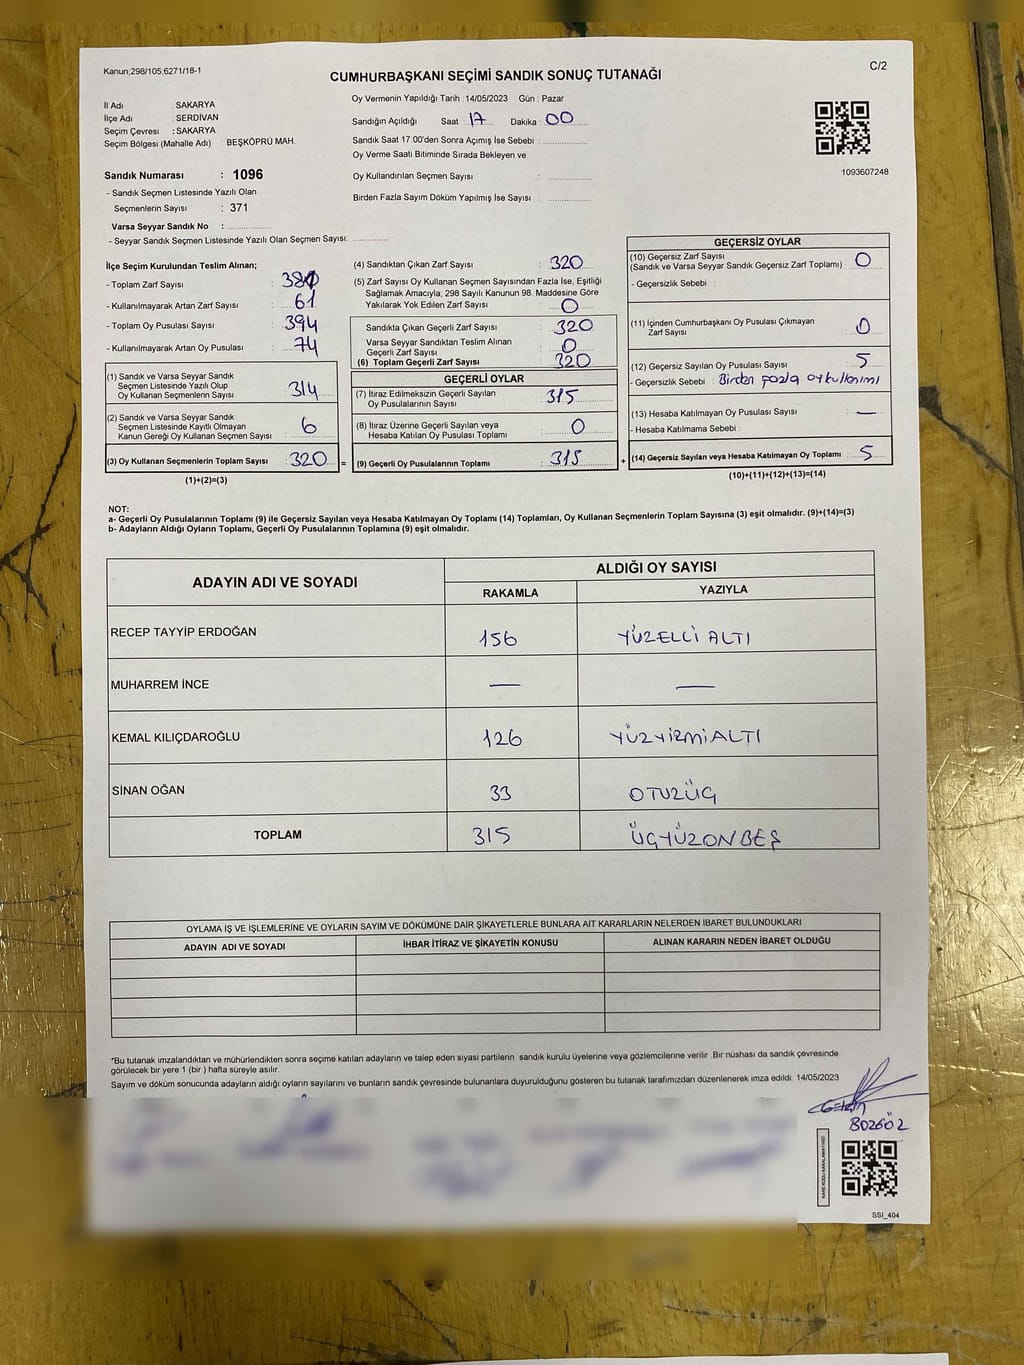 Kanun;298/105;6271/18-1
C/2
CUMHURBAŞKANI SEÇİMİ SANDIK SONUÇ TUTANAĞI
İl Adı : SAKARYA
İlçe Adı : SERDİVAN
Seçim Çevresi : SAKARYA
Seçim Bölgesi (Mahalle Adı) : BEŞKÖPRÜ MAH.
Oy Vermenin Yapıldığı Tarih : 14/05/2023 Gün : Pazar
Sandığın Açıldığı Saat : 17 Dakika : 00
Sandık Saat 17:00'den Sonra Açımış İse Sebebi :
Oy Verme Saati Bitiminde Sırada Bekleyen ve
Oy Kullandırılan Seçmen Sayısı :
Birden Fazla Sayım Döküm Yapılmış İse Sayısı :
1093607248
Sandık Numarası : 1096
- Sandık Seçmen Listesinde Yazılı Olan
Seçmenlerin Sayısı : 371
Varsa Seyyar Sandık No :
- Seyyar Sandık Seçmen Listesinde Yazılı Olan Seçmen Sayısı:
İlçe Seçim Kurulundan Teslim Alınan;
- Toplam Zarf Sayısı :
- Kullanılmayarak Artan Zarf Sayısı : 61
- Toplam Oy Pusulası Sayısı : 394
- Kullanılmayarak Artan Oy Pusulası : 74
(1) Sandık ve Varsa Seyyar Sandık
Seçmen Listesinde Yazılı Olup
Oy Kullanan Seçmenlerin Sayısı : 314
(2) Sandık ve Varsa Seyyar Sandık
Seçmen Listesinde Kayıtlı Olmayan
Kanun Gereği Oy Kullanan Seçmen Sayısı : 6
(3) Oy Kullanan Seçmenlerin Toplam Sayısı : 320
(1)+(2)=(3)
(4) Sandıktan Çıkan Zarf Sayısı : 320
(5) Zarf Sayısı Oy Kullanan Seçmen Sayısından Fazla İse, Eşitliği
Sağlamak Amacıyla; 298 Sayılı Kanunun 98. Maddesine Göre
Yakılarak Yok Edilen Zarf Sayısı : 0
Sandıkta Çıkan Geçerli Zarf Sayısı : 320
Varsa Seyyar Sandıktan Teslim Alınan
Geçerli Zarf Sayısı : 0
(6) Toplam Geçerli Zarf Sayısı : 320
GEÇERLİ OYLAR
(7) İtiraz Edilmeksizin Geçerli Sayılan
Oy Pusulalarının Sayısı : 315
(8) İtiraz Üzerine Geçerli Sayılan veya
Hesaba Katılan Oy Pusulası Toplamı : 0
= (9) Geçerli Oy Pusulalarının Toplamı : 315
GEÇERSİZ OYLAR
(10) Geçersiz Zarf Sayısı
(Sandık ve Varsa Seyyar Sandık Geçersiz Zarf Toplamı) : 0
- Geçersizlik Sebebi :
(11) İçinden Cumhurbaşkanı Oy Pusulası Çıkmayan
Zarf Sayısı : 0
(12) Geçersiz Sayılan Oy Pusulası Sayısı : 5
- Geçersizlik Sebebi : Birden fazla oy kullanımı
(13) Hesaba Katılmayan Oy Pusulası Sayısı : —
- Hesaba Katılmama Sebebi :
+ (14) Geçersiz Sayılan veya Hesaba Katılmayan Oy Toplamı : 5
(10)+(11)+(12)+(13)=(14)
NOT:
a- Geçerli Oy Pusulalarının Toplamı (9) ile Geçersiz Sayılan veya Hesaba Katılmayan Oy Toplamı (14) Toplamları, Oy Kullanan Seçmenlerin Toplam Sayısına (3) eşit olmalıdır. (9)+(14)=(3)
b- Adayların Aldığı Oyların Toplamı, Geçerli Oy Pusulalarının Toplamına (9) eşit olmalıdır.
ADAYIN ADI VE SOYADI
ALDIĞI OY SAYISI
RAKAMLA YAZIYLA
RECEP TAYYİP ERDOĞAN 156 YÜZELLİ ALTI
MUHARREM İNCE — —
KEMAL KILIÇDAROĞLU 126 YÜZYİRMİALTI
SİNAN OĞAN 33 OTUZÜÇ
TOPLAM 315 ÜÇYÜZONBEŞ
OYLAMA İŞ VE İŞLEMLERİNE VE OYLARIN SAYIM VE DÖKÜMÜNE DAİR ŞİKAYETLERLE BUNLARA AİT KARARLARIN NELERDEN İBARET BULUNDUKLARI
ADAYIN ADI VE SOYADI İHBAR İTİRAZ VE ŞİKAYETİN KONUSU ALINAN KARARIN NEDEN İBARET OLDUĞU
*Bu tutanak imzalandıktan ve mühürlendikten sonra seçime katılan adayların ve talep eden siyasi partilerin sandık kurulu üyelerine veya gözlemcilerine verilir. Bir nüshası da sandık çevresinde
görülecek bir yere 1 (bir ) hafta süreyle asılır.
Sayım ve döküm sonucunda adayların aldığı oyların sayılarını ve bunların sandık çevresinde bulunanlara duyurulduğunu gösteren bu tutanak tarafımızdan düzenlenerek imza edildi. 14/05/2023
BOZGÖZ
KARE KODU KARALAMAYINIZ!
SSI_404